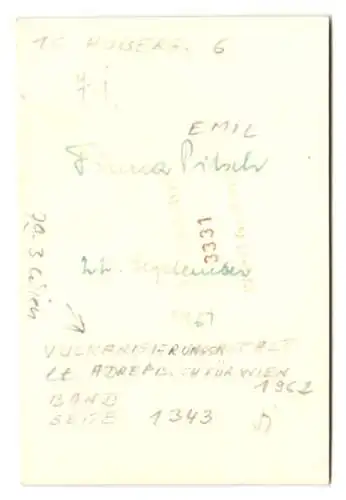 6
EMIL
Firma Pitsch
3331
22. September
61
VULKANISIERUNGSANSTALT
lt. ADREßBUCH FÜR WIEN
1962
BAND
SEITE 1343